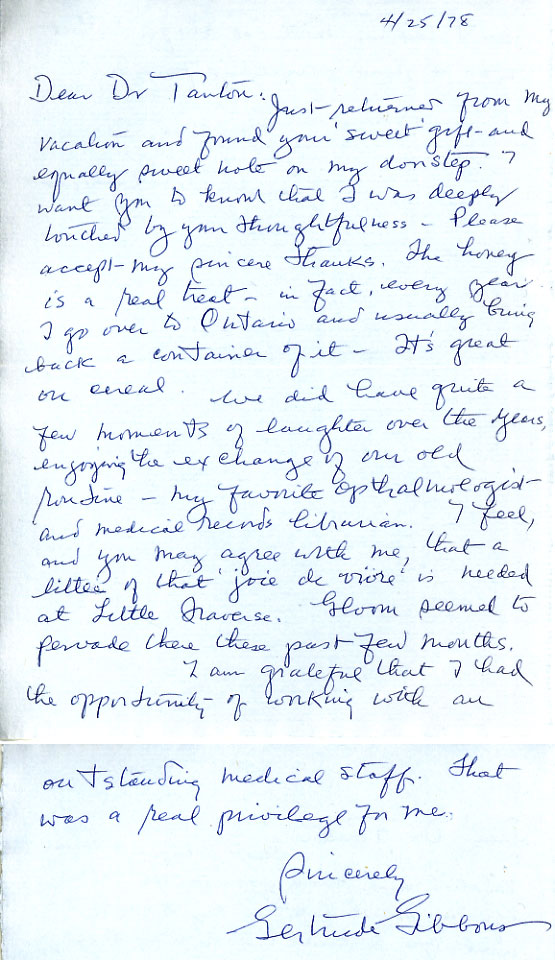 4/25/78
Dear Dr Tanton:
Just returned from my
vacation and found your 'sweet' gift and
equally sweet note on my doorstep. I
want you to know that I was deeply
touched by your thoughtfulness - Please
accept my sincere thanks. The honey
is a real treat - in fact, every year
I go over to Ontario and usually bring
back a container of it - It's great
on cereal. We did have quite a
few moments of laughter over the years,
enjoying the exchange of our old
routine - my favorite opthalmologist
and medical records librarian. I feel,
and you may agree with me, that a
little of that 'joie de vivre' is needed
at Little Traverse. Gloom seemed to
pervade there these past few months.
I am grateful that I had
the opportunity of working with an
outstanding medical staff. That
was a real privilege for me.
Sincerely
Gertrude Gibbons